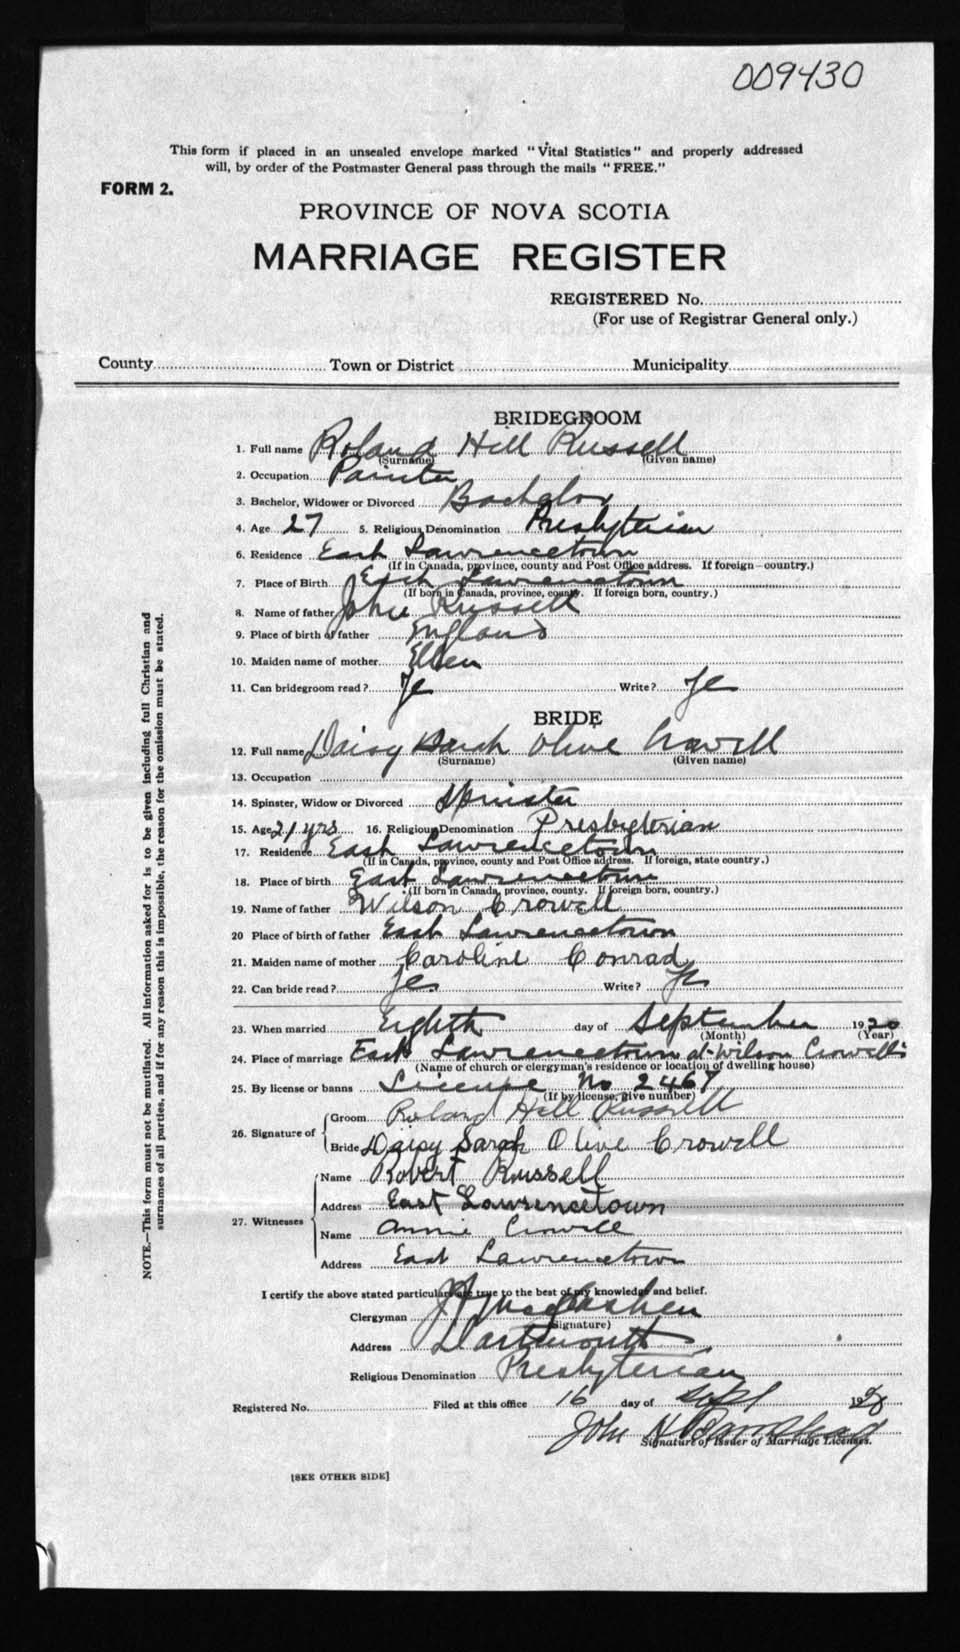 009430
This form if placed in an unsealed envelope marked "Vital Statistics" and properly addressed
will, by order of the Postmaster General pass through the mails "FREE."
FORM 2.
PROVINCE OF NOVA SCOTIA
MARRIAGE REGISTER
REGISTERED No.
(For use of Registrar General only.)
County Town or District Municipality
BRIDEGROOM
1. Full name Roland Hill Russell
(Surname) (Given name)
2. Occupation Painter
3. Bachelor, Widower or Divorced Bachelor
4. Age 27 5. Religious Denomination Presbyterian
6. Residence East Lawrencetown
(If in Canada, province, county and Post Office address. If foreign—country.)
7. Place of Birth East Lawrencetown
(If born in Canada, province, county. If foreign born, country.)
8. Name of father John Russell
9. Place of birth of father England
10. Maiden name of mother Ellen
11. Can bridegroom read? Ye Write? Ye
BRIDE
12. Full name Daisy Sarah Olive Crowell
(Surname) (Given name)
13. Occupation
14. Spinster, Widow or Divorced Spinster
15. Age 21 yrs 16. Religious Denomination Presbyterian
17. Residence East Lawrencetown
(If in Canada, province, county and Post Office address. If foreign, state country.)
18. Place of birth East Lawrencetown
(If born in Canada, province, county. If foreign born, country.)
19. Name of father Wilson Crowell
20 Place of birth of father East Lawrencetown
21. Maiden name of mother Caroline Conrad
22. Can bride read? Yes Write? Yes
23. When married Eighth day of September 1920
(Month) (Year)
24. Place of marriage East Lawrencetown at Wilson Crowell's
(Name of church or clergyman's residence or location of dwelling house)
25. By license or banns License No 2467
(If by license, give number)
26. Signature of
Groom Roland Hill Russell
Bride Daisy Sarah Olive Crowell
27. Witnesses
Name Robert Russell
Address East Lawrencetown
Name Annie Crowell
Address East Lawrencetown
I certify the above stated particulars are true to the best of my knowledge and belief.
Clergyman
(Signature)
Address Dartmouth
Religious Denomination Presbyterian
Registered No. Filed at this office 16 day of Sept 1920
John H
Signature of Issuer of Marriage Licenses.
[SEE OTHER SIDE]
NOTE.—This form must not be mutilated. All information asked for is to be given including full Christian and
surnames of all parties, and if for any reason this is impossible, the reason for the omission must be stated.